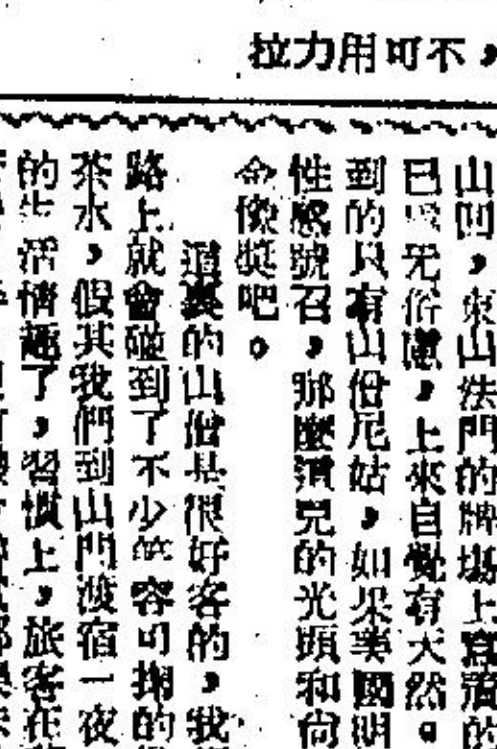 拉力用可不，
山回，東山法門的牌塲上寫滿的
已　光俗慮，上來自覺有天然。
到的只有山僧尼姑，如果美國明
性感號召，那麼濟兒的光頭和尙
金像獎吧。
這裏的山僧是很好客的，我
路上就會碰到了不少笑容可掬的
茶水，假其我們到山門渡宿一夜
的生活情趣了，習慣上，旅客在